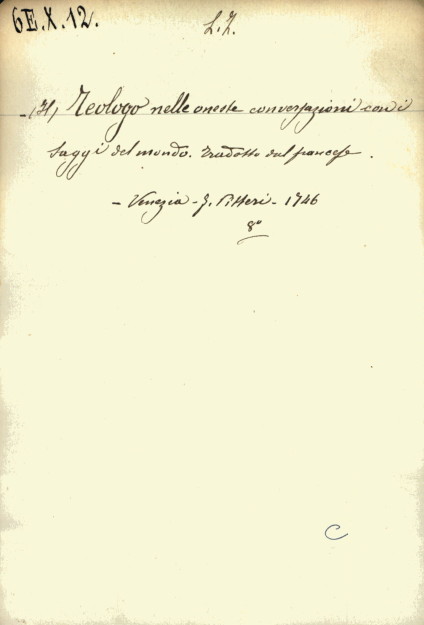 6E.X.12.
L.Z.
- (Il) Teologo nelle oneste conversazioni con i
saggi del mondo. Tradotto dal francese.
- Venezia - F. Pitteri - 1746
8°
C